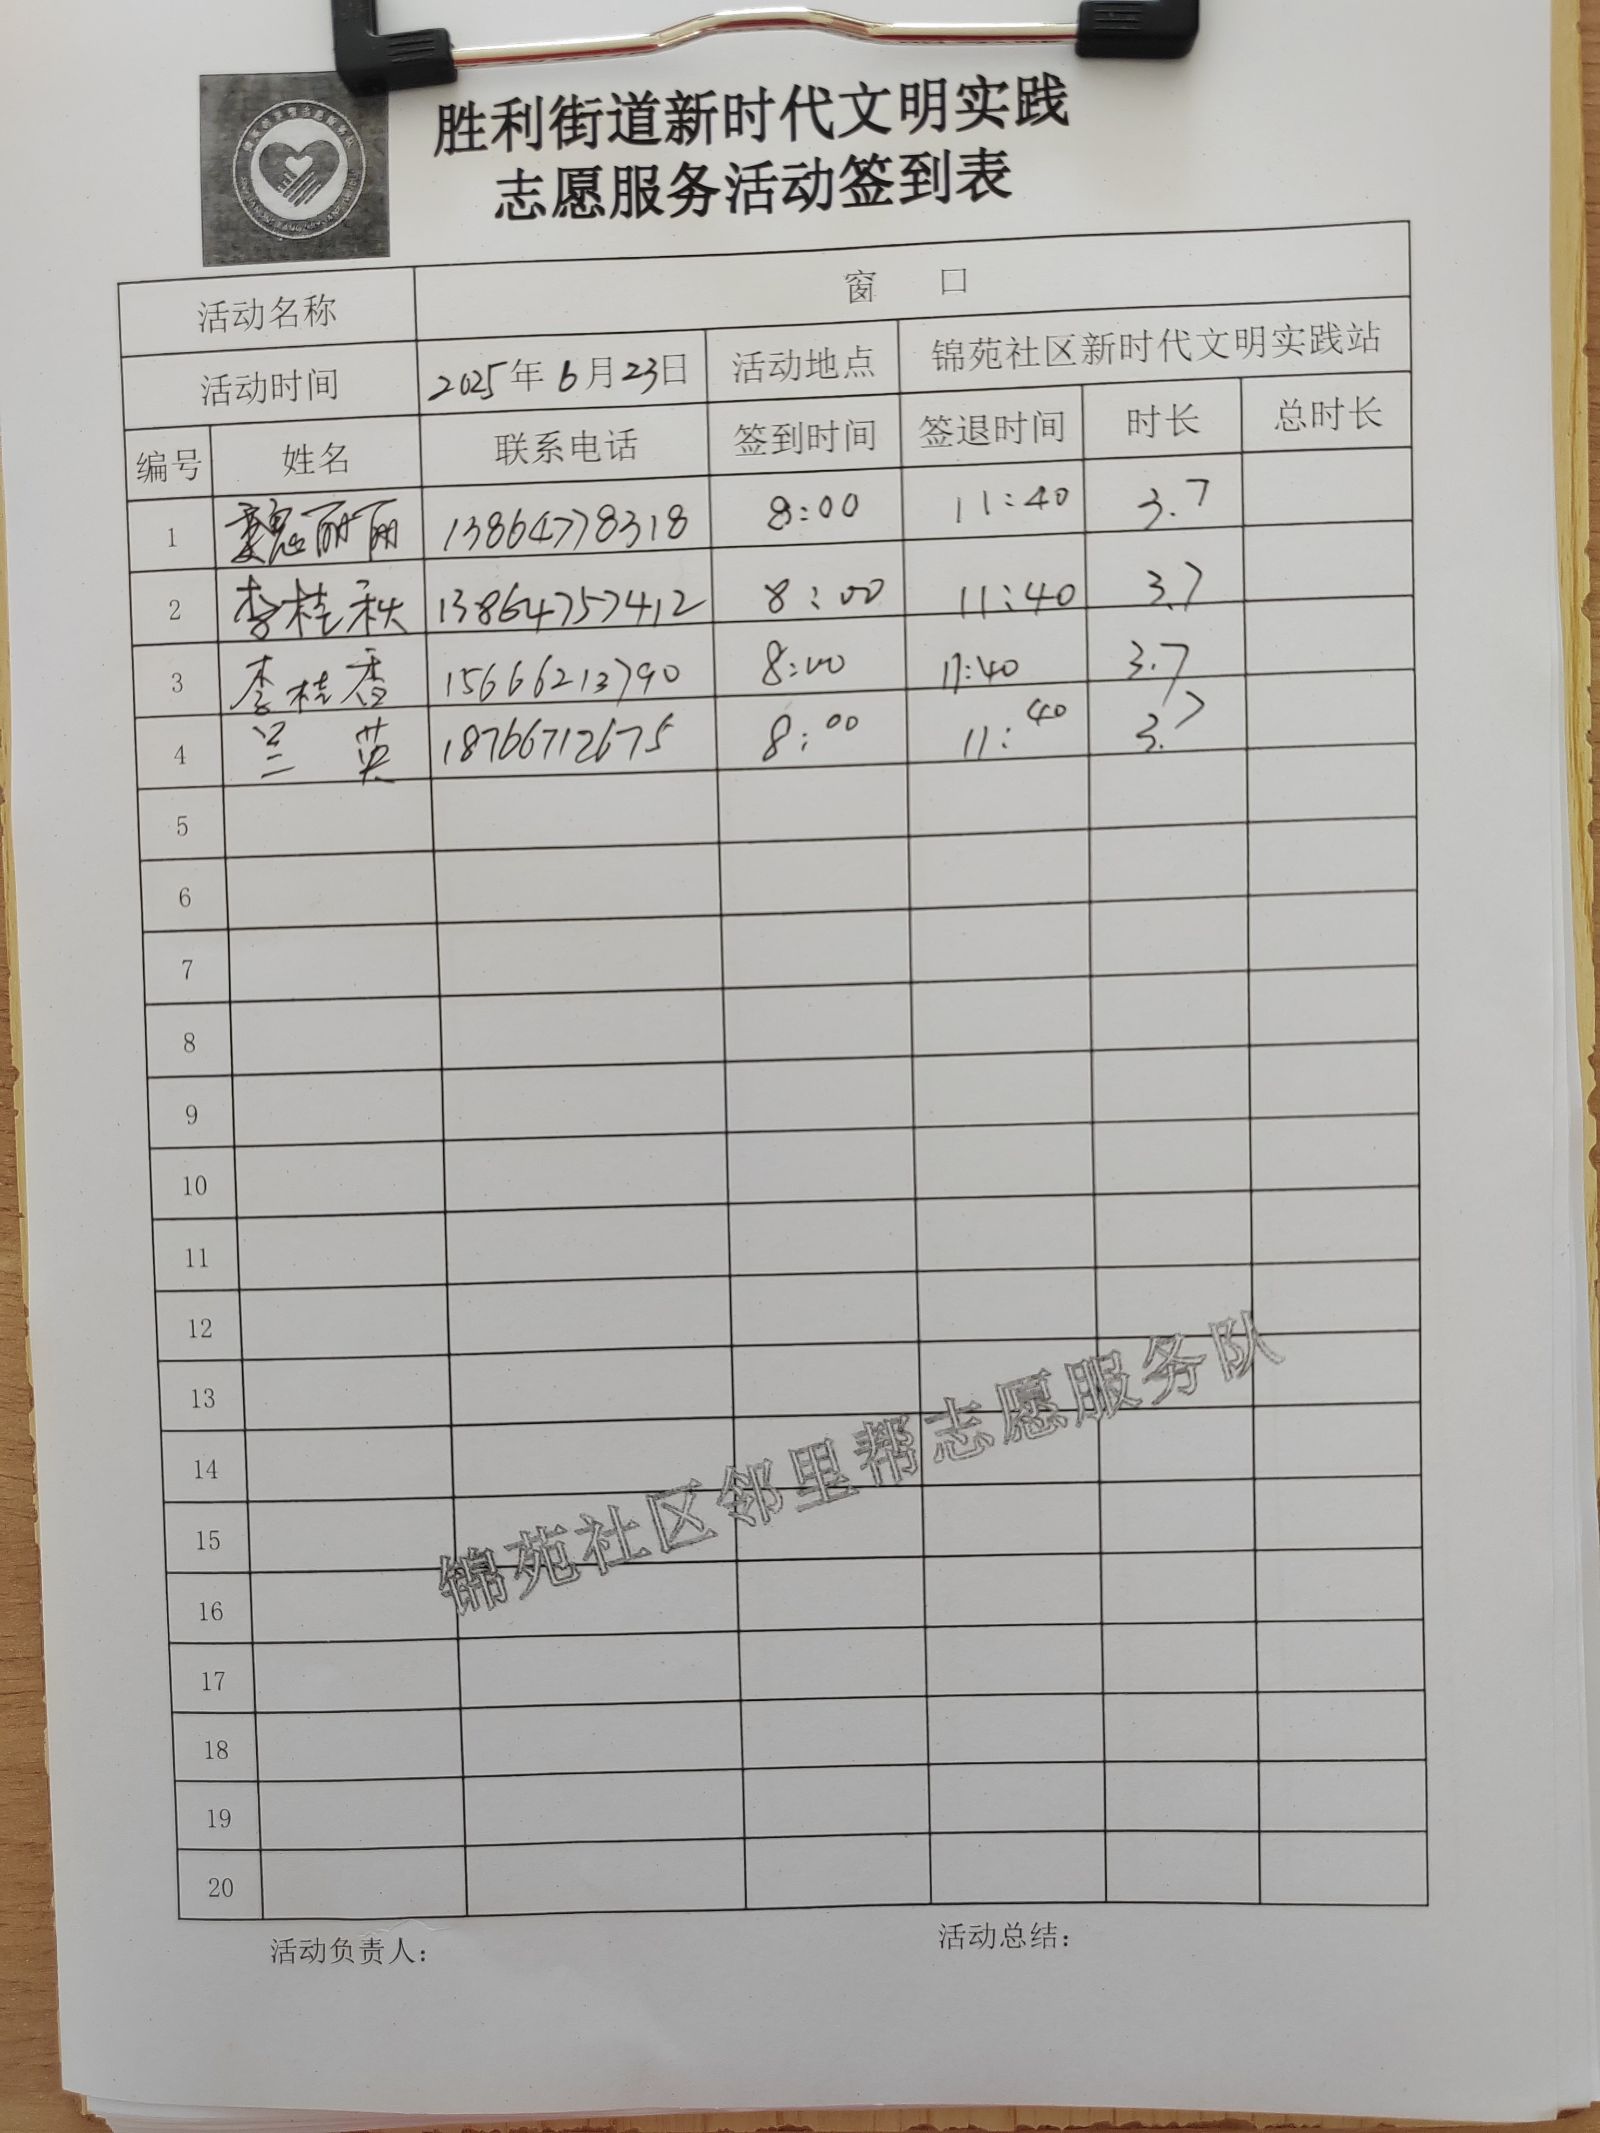 胜利街道新时代文明实践
志愿服务活动签到表
活动名称 窗 口
活动时间 2025年6月23日 活动地点 锦苑社区新时代文明实践站
编号 姓名 联系电话 签到时间 签退时间 时长 总时长
1 魏丽丽 13864778318 8:00 11:40 3.7
2 李桂秋 13864757412 8:00 11:40 3.7
3 李桂香 15666213790 8:00 11:40 3.7
4 兰 英 18766712675 8:00 11:40 3.7
5
6
7
8
9
10
11
12
13
14
15
16
17
18
19
20
锦苑社区邻里帮志愿服务队
活动负责人：
活动总结：